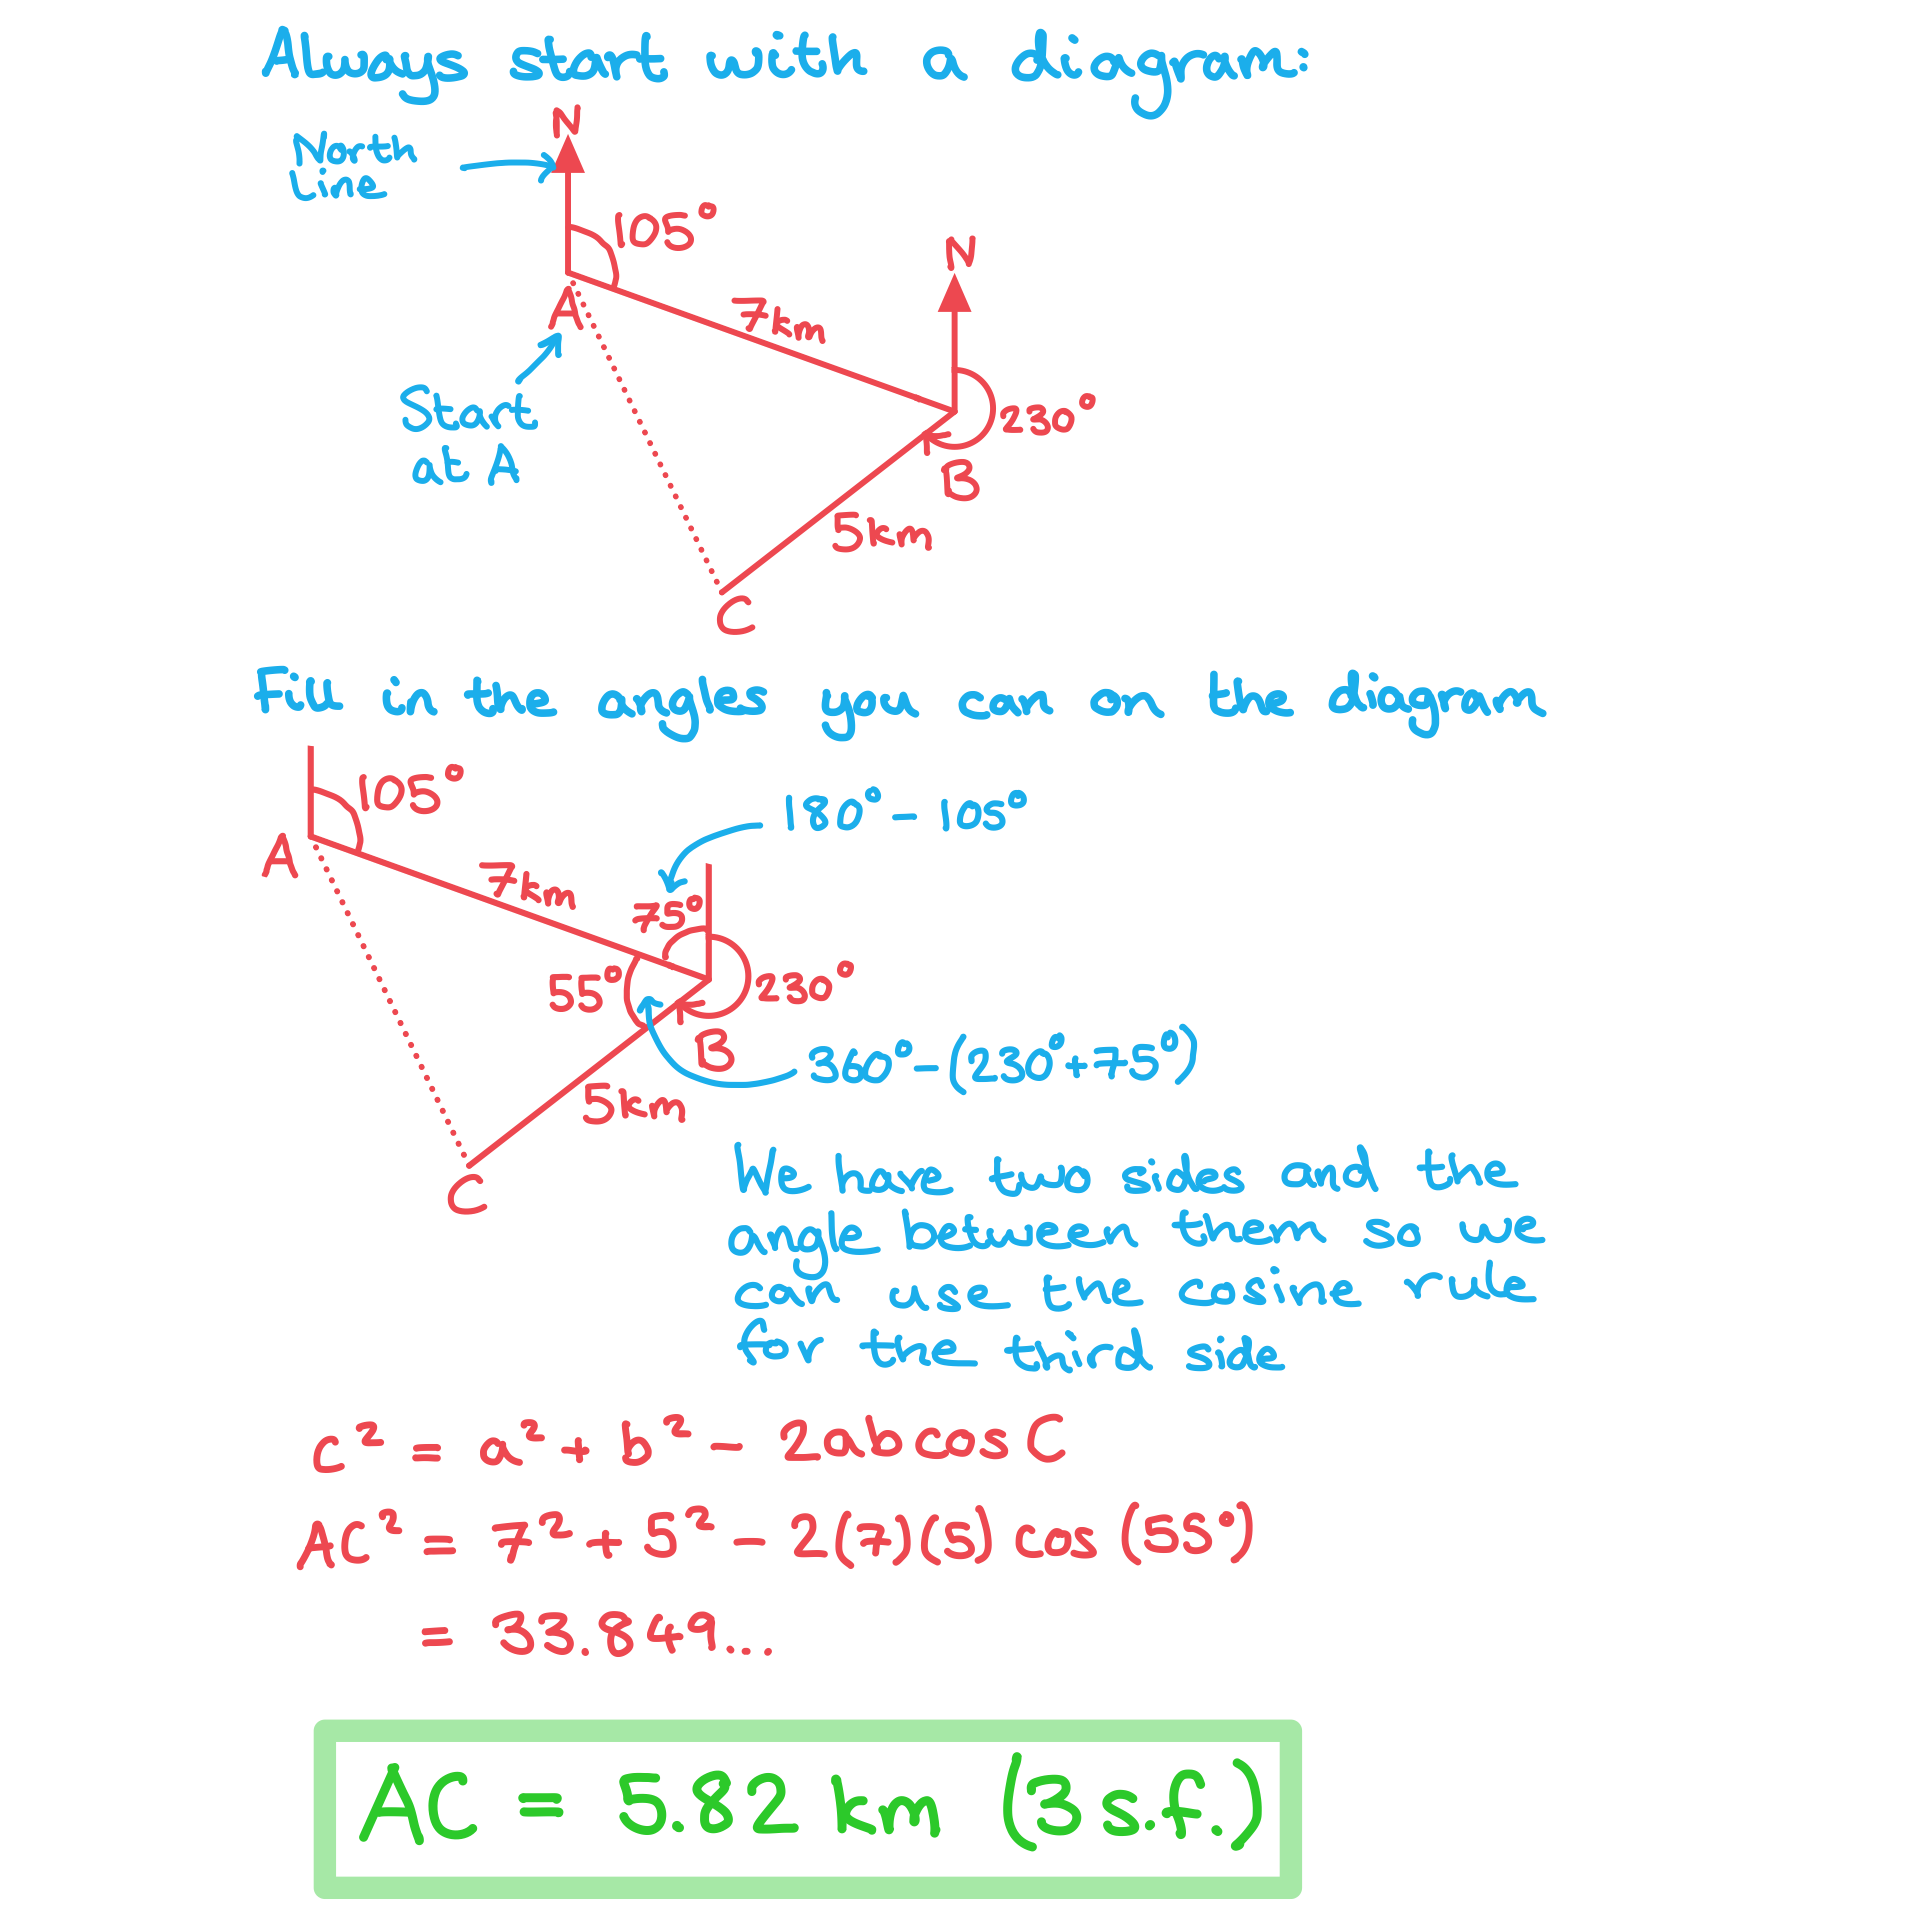 Always start with a diagram:
N
North
Line
105°
N
A
7km
230°
Start
at A
B
5km
C
Fill in the angles you can on the diagram
105°
180° - 105°
A
7km
75°
55°
230°
B
360° - (230° + 75°)
5km
C
We have two sides and the
angle between them so we
can use the cosine rule
for the third side
c² = a² + b² - 2abcosC
AC² = 7² + 5² - 2(7)(5) cos (55°)
= 33.849...
AC = 5.82 km (3 s.f.)